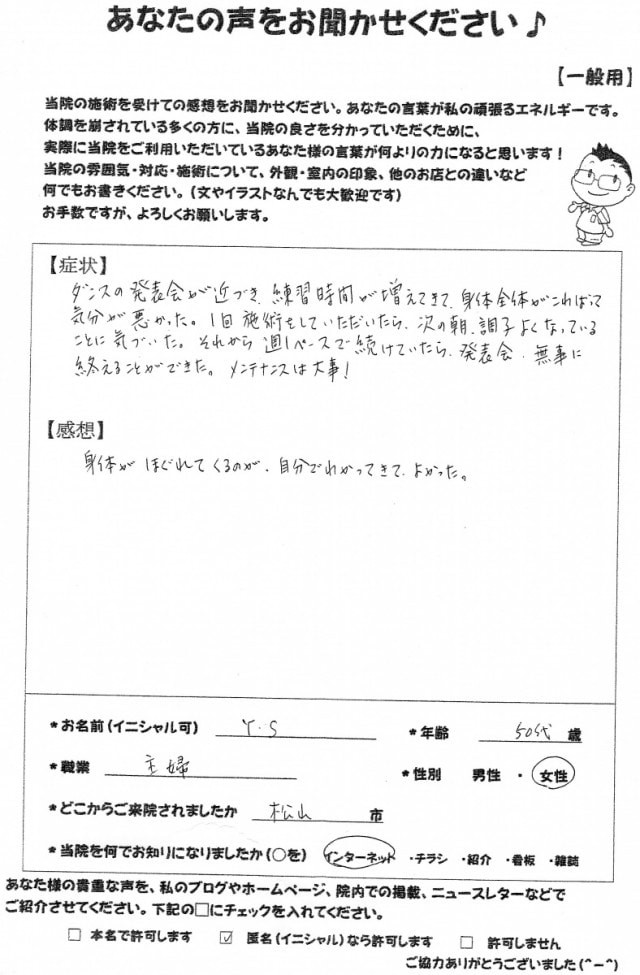 あなたの声をお聞かせください♪
【一般用】
当院の施術を受けての感想をお聞かせください。あなたの言葉が私の頑張るエネルギーです。
体調を崩されている多くの方に、当院の良さを分かっていただくために、
実際に当院をご利用いただいているあなた様の言葉が何よりの力になると思います！
当院の雰囲気・対応・施術について、外観・室内の印象、他のお店との違いなど
何でもお書きください。（文やイラストなんでも大歓迎です）
お手数ですが、よろしくお願いします。
【症状】
ダンスの発表会が近づき、練習時間が増えてきて、身体全体がこわばって
気分が悪かった。1回施術をしていただいたら、次の朝、調子よくなっている
ことに気づいた。それから週1ペースで続けていたら、発表会、無事に
終えることができた。メンテナンスは大事！
【感想】
身体がほぐれてくるのが、自分でわかってきて、よかった。
*お名前（イニシャル可） Y.S *年齢 50代 歳
*職業 主婦 *性別 男性 ・ 女性
*どこからご来院されましたか 松山 市
*当院を何でお知りになりましたか（○を） インターネット ・チラシ ・紹介 ・看板 ・雑誌
あなた様の貴重な声を、私のブログやホームページ、院内での掲載、ニュースレターなどで
ご紹介させてください。下記の□にチェックを入れてください。
□ 本名で許可します ☑ 匿名（イニシャル）なら許可します □ 許可しません
ご協力ありがとうございました（^－^）